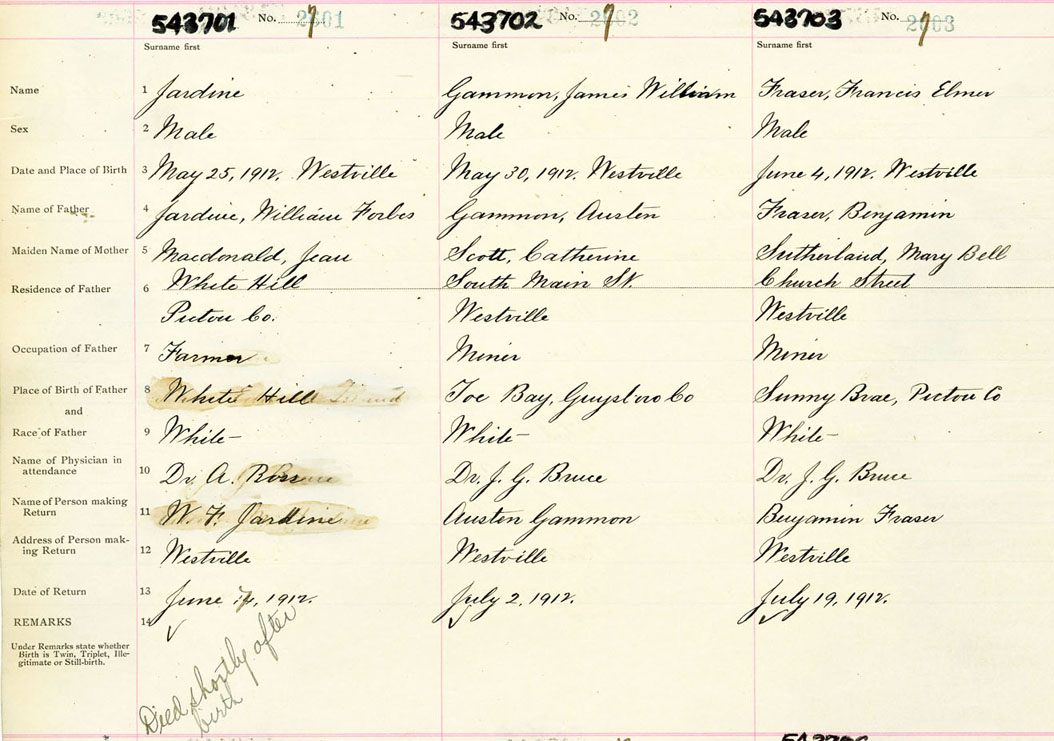 543701 No. 7 2601 543702 No. 7 2602 543703 No. 7 2603
Surname first Surname first Surname first
Name 1 Jardine Gammon, James William Fraser, Francis Elmer
Sex 2 Male Male Male
Date and Place of Birth 3 May 25, 1912. Westville May 30, 1912. Westville June 4, 1912. Westville
Name of Father 4 Jardine, William Forbes Gammon, Austen Fraser, Benjamin
Maiden Name of Mother 5 Macdonald, Jean Scott, Catherine Sutherland, Mary Bell
Residence of Father 6 White Hill South Main St. Church Street
Pictou Co. Westville Westville
Occupation of Father 7 Farmer Miner Miner
Place of Birth of Father 8 White Hill Toe Bay, Guysboro Co Sunny Brae, Pictou Co
and
Race of Father 9 White White White
Name of Physician in
attendance 10 Dr. A. Ross Dr. J. G. Bruce Dr. J. G. Bruce
Name of Person making
Return 11 W. F. Jardine Austen Gammon Benjamin Fraser
Address of Person mak-
ing Return 12 Westville Westville Westville
Date of Return 13 June 1912. July 2, 1912. July 19, 1912.
REMARKS 14
Under Remarks state whether
Birth is Twin, Triplet, Ille-
gitimate or Still-birth.
Died shortly after
birth